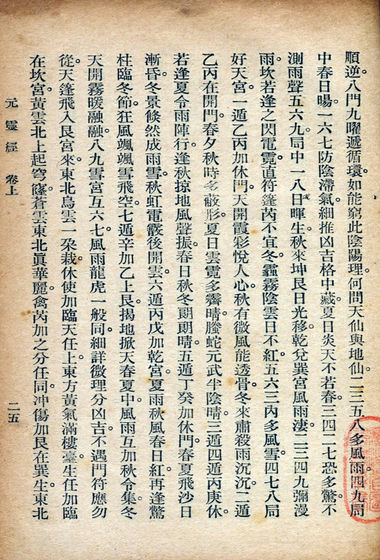 順逆八門九曜遞循環如能窮此陰陽理何問天仙與地仙二三五八多風雨四九局
中春日暘一六七防陰滯氣細推凶吉格中藏夏日炎天不若春三四二七恐多驚不
測雨聲五六九局中一八日暉生秋來坤艮日光移乾兌巽宮風雨淒二三四九瀰漫
雨坎若逢之閃電霓直符蓬芮不宜冬霾霧陰雲日不紅五六三內多風雪四七八局
好天宮一遁乙丙加休門天開霞彩悅人心秋有微風能透骨冬來肅殺雨沉沉二遁
乙丙在開門春夕秋時多散形夏日雲霓多霽晴騰蛇元武半陰晴三遁四遁丙庚休
若逢夏令雨陣行逢秋掠地風聲振春日秋冬朗朗晴五遁丁癸加休門春夏飛沙日
漸昏冬景倏然成雨雪秋虹電霰後開雲六遁丙戊加乾宮夏雨秋風春日紅再逢驚
柱臨冬節狂風颯颯雪飛空七遁辛加乙上艮揭地掀天春夏中風雨互加秋令集冬
天開霧暖融融八九雲宮互六七風雨龍虎一般同細詳微理分凶吉不遇門符應勿
從天蓬飛入艮宮來東北烏雲一朵栽休使加臨天任上東方黃氣滿樓臺生任加臨
在坎宮黃雲北上起穹窿蒼雲東北眞華麗禽芮加之分任同冲傷加艮在巽生東北
元靈經 卷上 二五